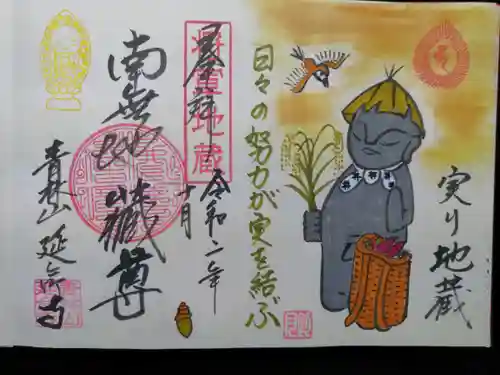 実り地蔵
日々の努力が実を結ぶ
奉拝
令和二年
十月
南無地蔵尊
青林山 延命寺